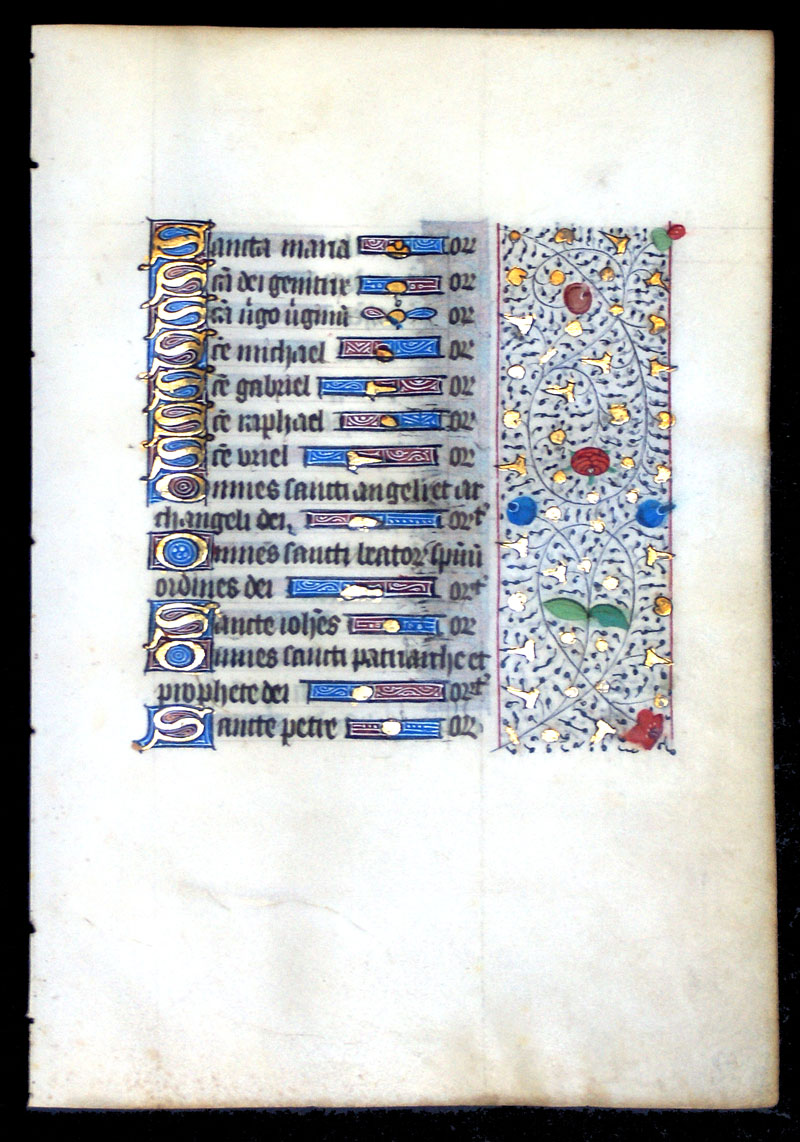 Sancta maria or
Sc̄a dei genitrix or
Sc̄a ūgo ūginū or
Sc̄e michael or
Sc̄e gabriel or
Sc̄e raphael or
Sc̄e uriel or
Omnes sancti angeli et ar
changeli dei, or̄t
Omnes sancti beator spūū
ordines dei or̄t
Sancte ioh̄es or
Omnes sancti patriarche et
prophete dei or̄t
Sancte petre or